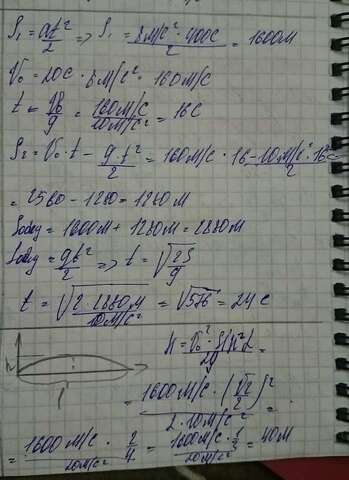 S₁ = at²/2 => S₁ = 8м/с² · 400с/2 = 1600м
V₀ = 20с · 8м/с² = 160м/с
t = V₀/g = 160м/с / 10м/с² = 16с
S₂ = V₀ · t - g·t²/2 = 160м/с · 16 - 10м/с² · 16²/2
= 2560 - 1280 = 1280м
Sобщ = 1600м + 1280м = 2880м
Sобщ = gt²/2 => t = √2S/g
t = √2·2880м/10м/с² = √576 = 24с
h = V₀² · sin²α/2g =
h
l
= 1600м/с · (√2/2)²/2·10м/с² =
= 1600м/с · 2/4 / 20м/с² = 1600м/с · 1/2 / 20м/с² = 40м